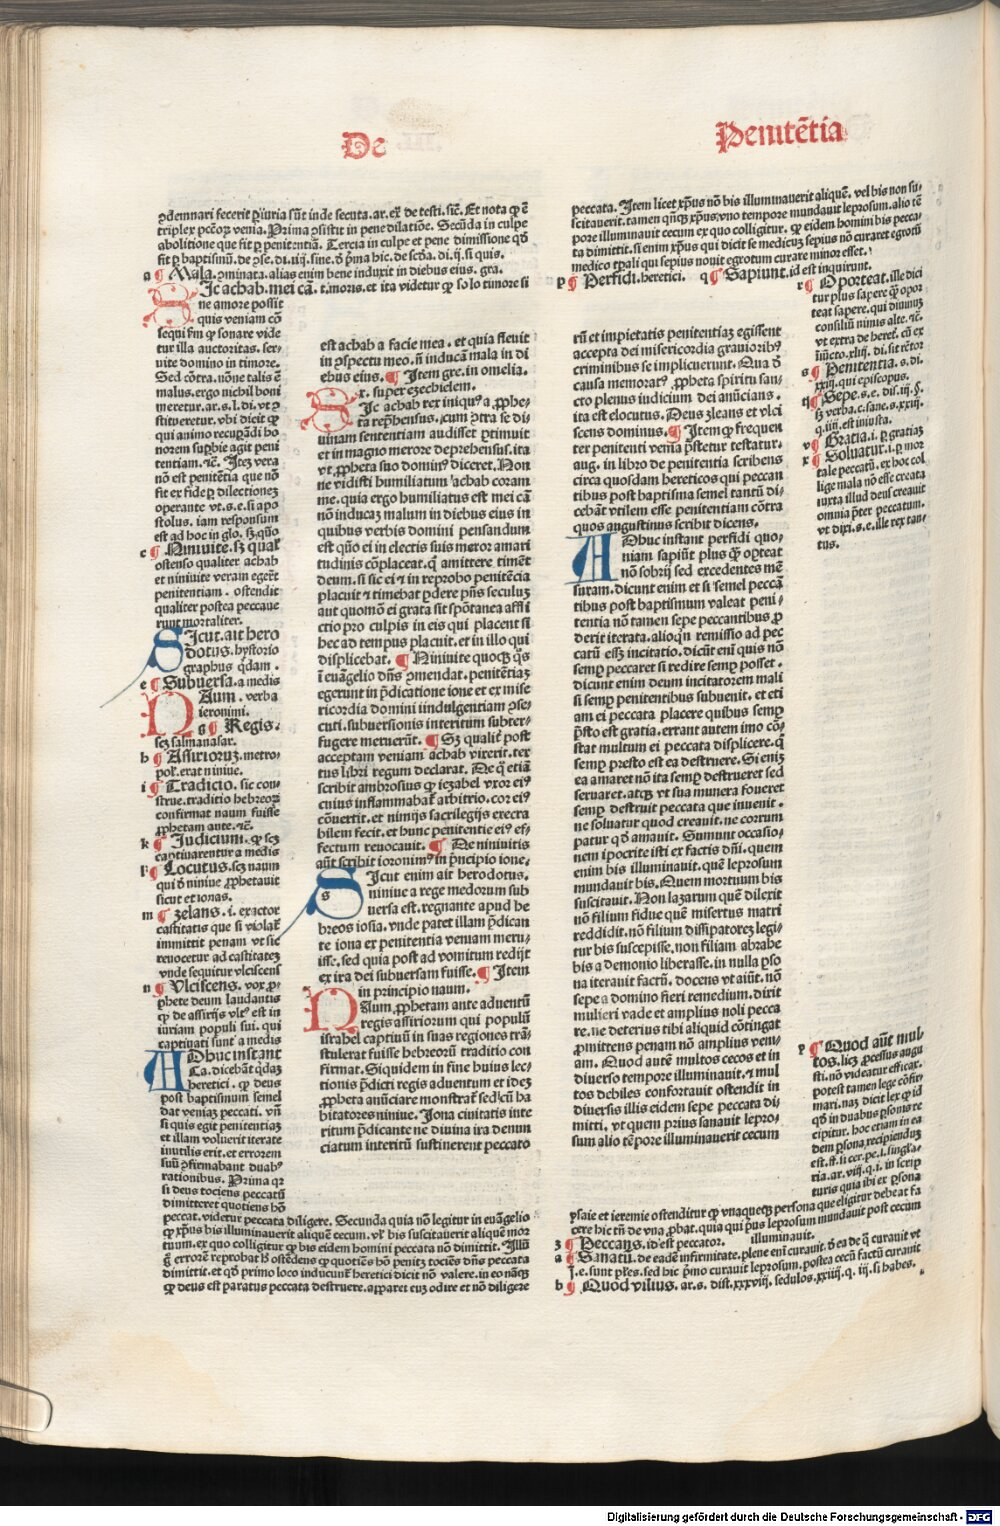 De
Penitētia
ꝯdemnari fecerit ꝑiuria sūt inde secuta. ar. ex̄ de testi. sic̄. Et nota ꝙ ē
triplex pctō₂ venia. Prima ꝯsistit in pene dilatiōe. Secūda in culpe
abolitione que fit ꝑ penitentiā. Tercia in culpe et pene dimissione qd̄
a ¶ Mala. ꝯminata. alias enim bene induxit in diebus eius. gra.
Sic achab. mei cā. t. moris. et ita videtur ꝙ solo timore si
ne amore possit
quis veniam cō
sequi
tur illa auctoritas. ser⸗
uite domino in timore.
malus. ergo nichil boni
qui animo recuꝑandi ho
norem suꝑbie agit peni
tentiam. ⁊c̄.
non est penitētia que nō
fit ex fide
stolus. iam responsum
c ¶ Niniuite.
ostenso qualiter achab
et niniuite veram egerūt
penitentiam. ostendit
qualiter postea peccaue
runt mortaliter.
Sicut. ait hero
dotus. hystorio
graphus qdam.
e ¶ Subuersa. a medis
Naum. verba
ieronimi.
g ¶ Regis.
scz salmanasar.
h ¶ Assirio₂. metro⸗
pol. erat niniue.
i ¶ Tradicio. sic con⸗
strue. traditio hebreo₂
confirmat naum fuisse
ꝓphetam ante. ⁊c̄.
k ¶ Judicium. ꝙ scz
captiuarentur a medis
l ¶ Locutus. scz naum
qui d̄ niniue ꝓphetauit
sicut et ionas.
m ¶ zelans. i. exactor
castitatis que si violat̄
immittit penam vt sic
reuocetur ad castitatez
vnde sequitur vlciscens
n ¶ Vlciscens. vox ꝓ⸗
phete deum laudantis
iuriam populi sui. qui
captiuati sunt a medis
Adhuc instant
heretici. ꝙ deus
post baptismum semel
dat veniaz peccati.
si quis egit penitentiaz
et illam voluerit iterate
inutilis erit. et errorem
suū ꝯfirmabant duab⁹
rationibus. Prima qꝛ
si deus tociens peccatū
dimitteret quotiens hō
peccat. videtur peccata diligere. Secunda quia nō legitur in euāgelio
ꝙ xp̄us bis illuminauerit aliquē cecum.
tuum. ex quo colligitur ꝙ bis eidem homini peccata nō dimittit.
dimittit. et qd̄ primo loco inducunt heretici dicit nō valere. in eo nāqꝫ
ꝙ deus est ꝑaratus peccata destruere. apparet euꝫ odire et nō diligere
est achab a facie mea. et quia fleuit
in ꝯspectu meo. nō inducā mala in di
ebus eius. ¶ Item gre. in omelia.
x. super ezechielem.
Sic achab rex iniqus a ꝓphe⸗
ta repꝛhensus. cum ꝯtra se di⸗
uinam sententiam audisset ꝑtimuit
et in magno merore depꝛehensus. ita
vt ꝓpheta suo domin⁹ diceret. Non
ne vidisti humiliatum achab coram
me. quia ergo humiliatus est mei cā
nō inducaꝫ malum in diebus eius in
quibus verbis domini pensandum
est quō ei in electis suis meror amari
tudinis cōplaceat. q̄ amittere timēt
deum. si sic ei ⁊ in reprobo penitēcia
placuit ꝗ timebat ꝑdere pn̄s seculuꝫ
aut quomō ei grata sit spōtanea affli
ctio pro culpis in eis qui placent si
hec ad tempus placuit. et in illo qui
displicebat. ¶ Niniuite quoqꝫ q̄s
ī euāgelio dn̄s ꝯmendat. penitētiaꝫ
egerunt in ꝑdicatione ione et ex mise
ricordia domini iindulgentiam ꝯse⸗
cuti. subuersionis interitum subter⸗
fugere meruerūt. ¶ Sꝫ qualit̄ post
acceptam veniam achab vixerit. ter
tus libri regum declarat. De q̄ etiā
scribit ambrosius ꝙ iezabel vxor ei⁹
cuius inflammabat̄ arbitrio. cor ei⁹
cōuertit. et nimijs sacrilegijs execra
bilem fecit. et hunc penitentie ei⁹ ef⸗
fectum reuocauit. ¶ De niniuitis
aūt scribit ieronim⁹ in ꝑncipio ione.
Sicut enim ait herodotus.
niniue a rege medorum sub
uersa est. regnante apud he
breos iosia. vnde patet illam ꝑdican
te iona ex penitentia veniam meru⸗
isse. sed quia post ad vomitum redijt
ex ira dei subuersam fuisse. ¶ Item
in principio naum.
Naum ꝓphetam ante aduentū
regis assiriorum qui populū
israhel captiuū in suas regiones trā⸗
stulerat fuisse hebreorū traditio con
firmat. Siquidem in fine huius lec⸗
tionis ꝑdicti regis aduentum et ideꝫ
ꝓpheta anūciare monstrat̄ sed cū ha
bitatores niniue. Jona ciuitatis inte
ritum ꝑdicante ne diuina ira denun
ciatum interitū sustinerent peccato
peccata. Item licet xp̄us nō bis illuminauerit aliquē. vel bis non su⸗
scitauerit. tamen qnqꝫ xp̄us vno tempore mundauit leprosum. alio tē
pore illuminauit cecum ex quo colligitur. ꝙ eidem homini bis pecca⸗
ta dimittit. si enim xp̄us qui dicit se medicuꝫ sepius nō curaret egrotū
medico tꝑali qui sepius nouit egrotum curare minor esset.
p ¶ Perfidi. heretici. q ¶ Sapiunt. id est inquirunt.
rū et impietatis penitentiaꝫ egissent
accepta dei misericordia graviorib⁹
criminibus se implicuerunt. Qua d̄
causa memorat⁹ ꝓpheta spiritu san⸗
cto plenus iudicium dei anūcians.
ita est elocutus. Deus ꝫelans et vlci
scens dominus. ¶ Item ꝙ frequen
ter penitenti venia ꝑstetur testatur.
aug. in libro de penitentia scribens
circa quosdam hereticos qui peccan
tibus post baptisma semel tantū di⸗
cebāt vtilem esse penitentiam cōtra
quos augustinus scribit dicens.
Adhuc instant perfidi quo⸗
niam sapiūt plus q̄ꝫ oꝑteat
nō sobrij sed excedentes mē
suram. dicunt enim et si semel peccā
tibus post baptismum valeat peni⸗
tentia nō tamen sepe peccantibus ꝓ
derit iterata. alioqn remissio ad pec
catū esset incitatio. dicūt eni quis nō
semꝑ peccaret si redire semꝑ posset.
dicunt enim deum incitatorem mali
si semꝑ penitentibus subuenit. et eti
am ei peccata placere quibus semꝑ
ꝑsto est gratia. errant autem imo cō⸗
stat multum ei peccata displicere. q̄
semꝑ presto est ea destruere. Si eniꝫ
ea amaret nō ita semꝑ destrueret sed
seruaret. atqꝫ vt sua munera foueret
semꝑ destruit peccata que inuenit.
ne soluatur quod creauit. ne corrum
patur qd̄ amauit. Sumunt occasio⸗
nem ipocrite isti ex factis dn̄i. quem
enim bis illuminauit. quē leprosum
mundauit bis. Quem mortuum bis
suscitauit. Non lazarum quē dilexit
nō filium fidue quē misertus matri
reddidit. nō filium dissipatoreꝫ legi⸗
tur bis suscepisse. non filiam abrahe
bis a demonio liberasse. in nulla ꝑso
na iterauit factū. docens vt aiūt. nō
sepe a domino fieri remedium. dixit
mulieri vade et amplius noli pecca
re. ne deterius tibi aliquid cōtingat
ꝓmittens penam nō amplius veni⸗
am. Quod autē multos cecos et in
diuerso tempore illuminauit. ⁊ mul
tos debiles confortauit ostendit in
diuersis illis eidem sepe peccata di⸗
mitti. vt quem prius sanauit lepro⸗
sum alio tēpore illuminauerit cecum
r ¶ Oporteat. ille dici
tur plus sapere q̄ꝫ opor
teat sapere. qui diuinuꝫ
consiliū nimis alte. ⁊c̄.
s ¶ Penitentia. s. di.
xxiij. qui episcopus.
¶ Sepe. s. e. dis. iij. §.
v ¶ Gratia. i. ꝑ gratiaꝫ
x ¶ Soluatur. i. ꝑ mor
tale peccatū. ex hoc col
lige mala nō esse creata
iuxta illud deus creauit
omnia ꝓpter peccatum.
vt dixi. s. e. ille rex tan⸗
tus.
y ¶ Quod aūt mul⸗
tos. licꝫ ꝓcessus augu
sti. nō videatur efficax.
potest tamen lege cōfir⸗
mari. naꝫ dicit lex ꝙ id
qd̄ in duabus ꝑsonis re
cipitur. hoc etiam in ea
dem ꝑsona recipienduꝫ
ria. ar. viij. q. i. in scrip
turis quia ibi ex ꝑsona
ysaie et ieremie ostenditur ꝙ vnaqueqꝫ persona que eligitur debeat fa
cere hic tn̄ de vna ꝓbat. quia qui pius leprosum mundauit post cecum
illuminauit.
z ¶ Peccans. id est peccator.
a ¶ Sanatū. de eadē infirmitate. plene eni curauit.
J. e. sunt ples. sed hic ꝑmo curauit leprosum. postea cecū factū curauit
b ¶ Quod vilius. ar. s. dist. xxxviij. sedulos. xxiiij. q. iij. si habes.
Digitalisierung gefördert durch die Deutsche Forschungsgemeinschaft - DFG